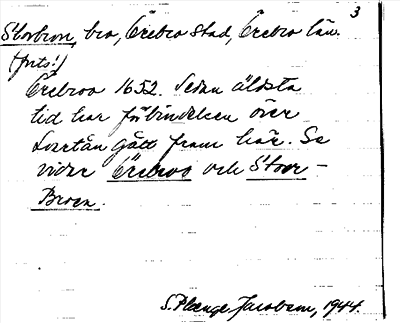 3
Storbron, bro, Örebro stad, Örebro län.
(forts.)
Örebroo 1652. Sedan äldsta
tid har förbindelsen över
Svartån gått fram här. Se
vidare Örebroo och Stoor-
Broen.
S. Plænge Jacobson, 1944.